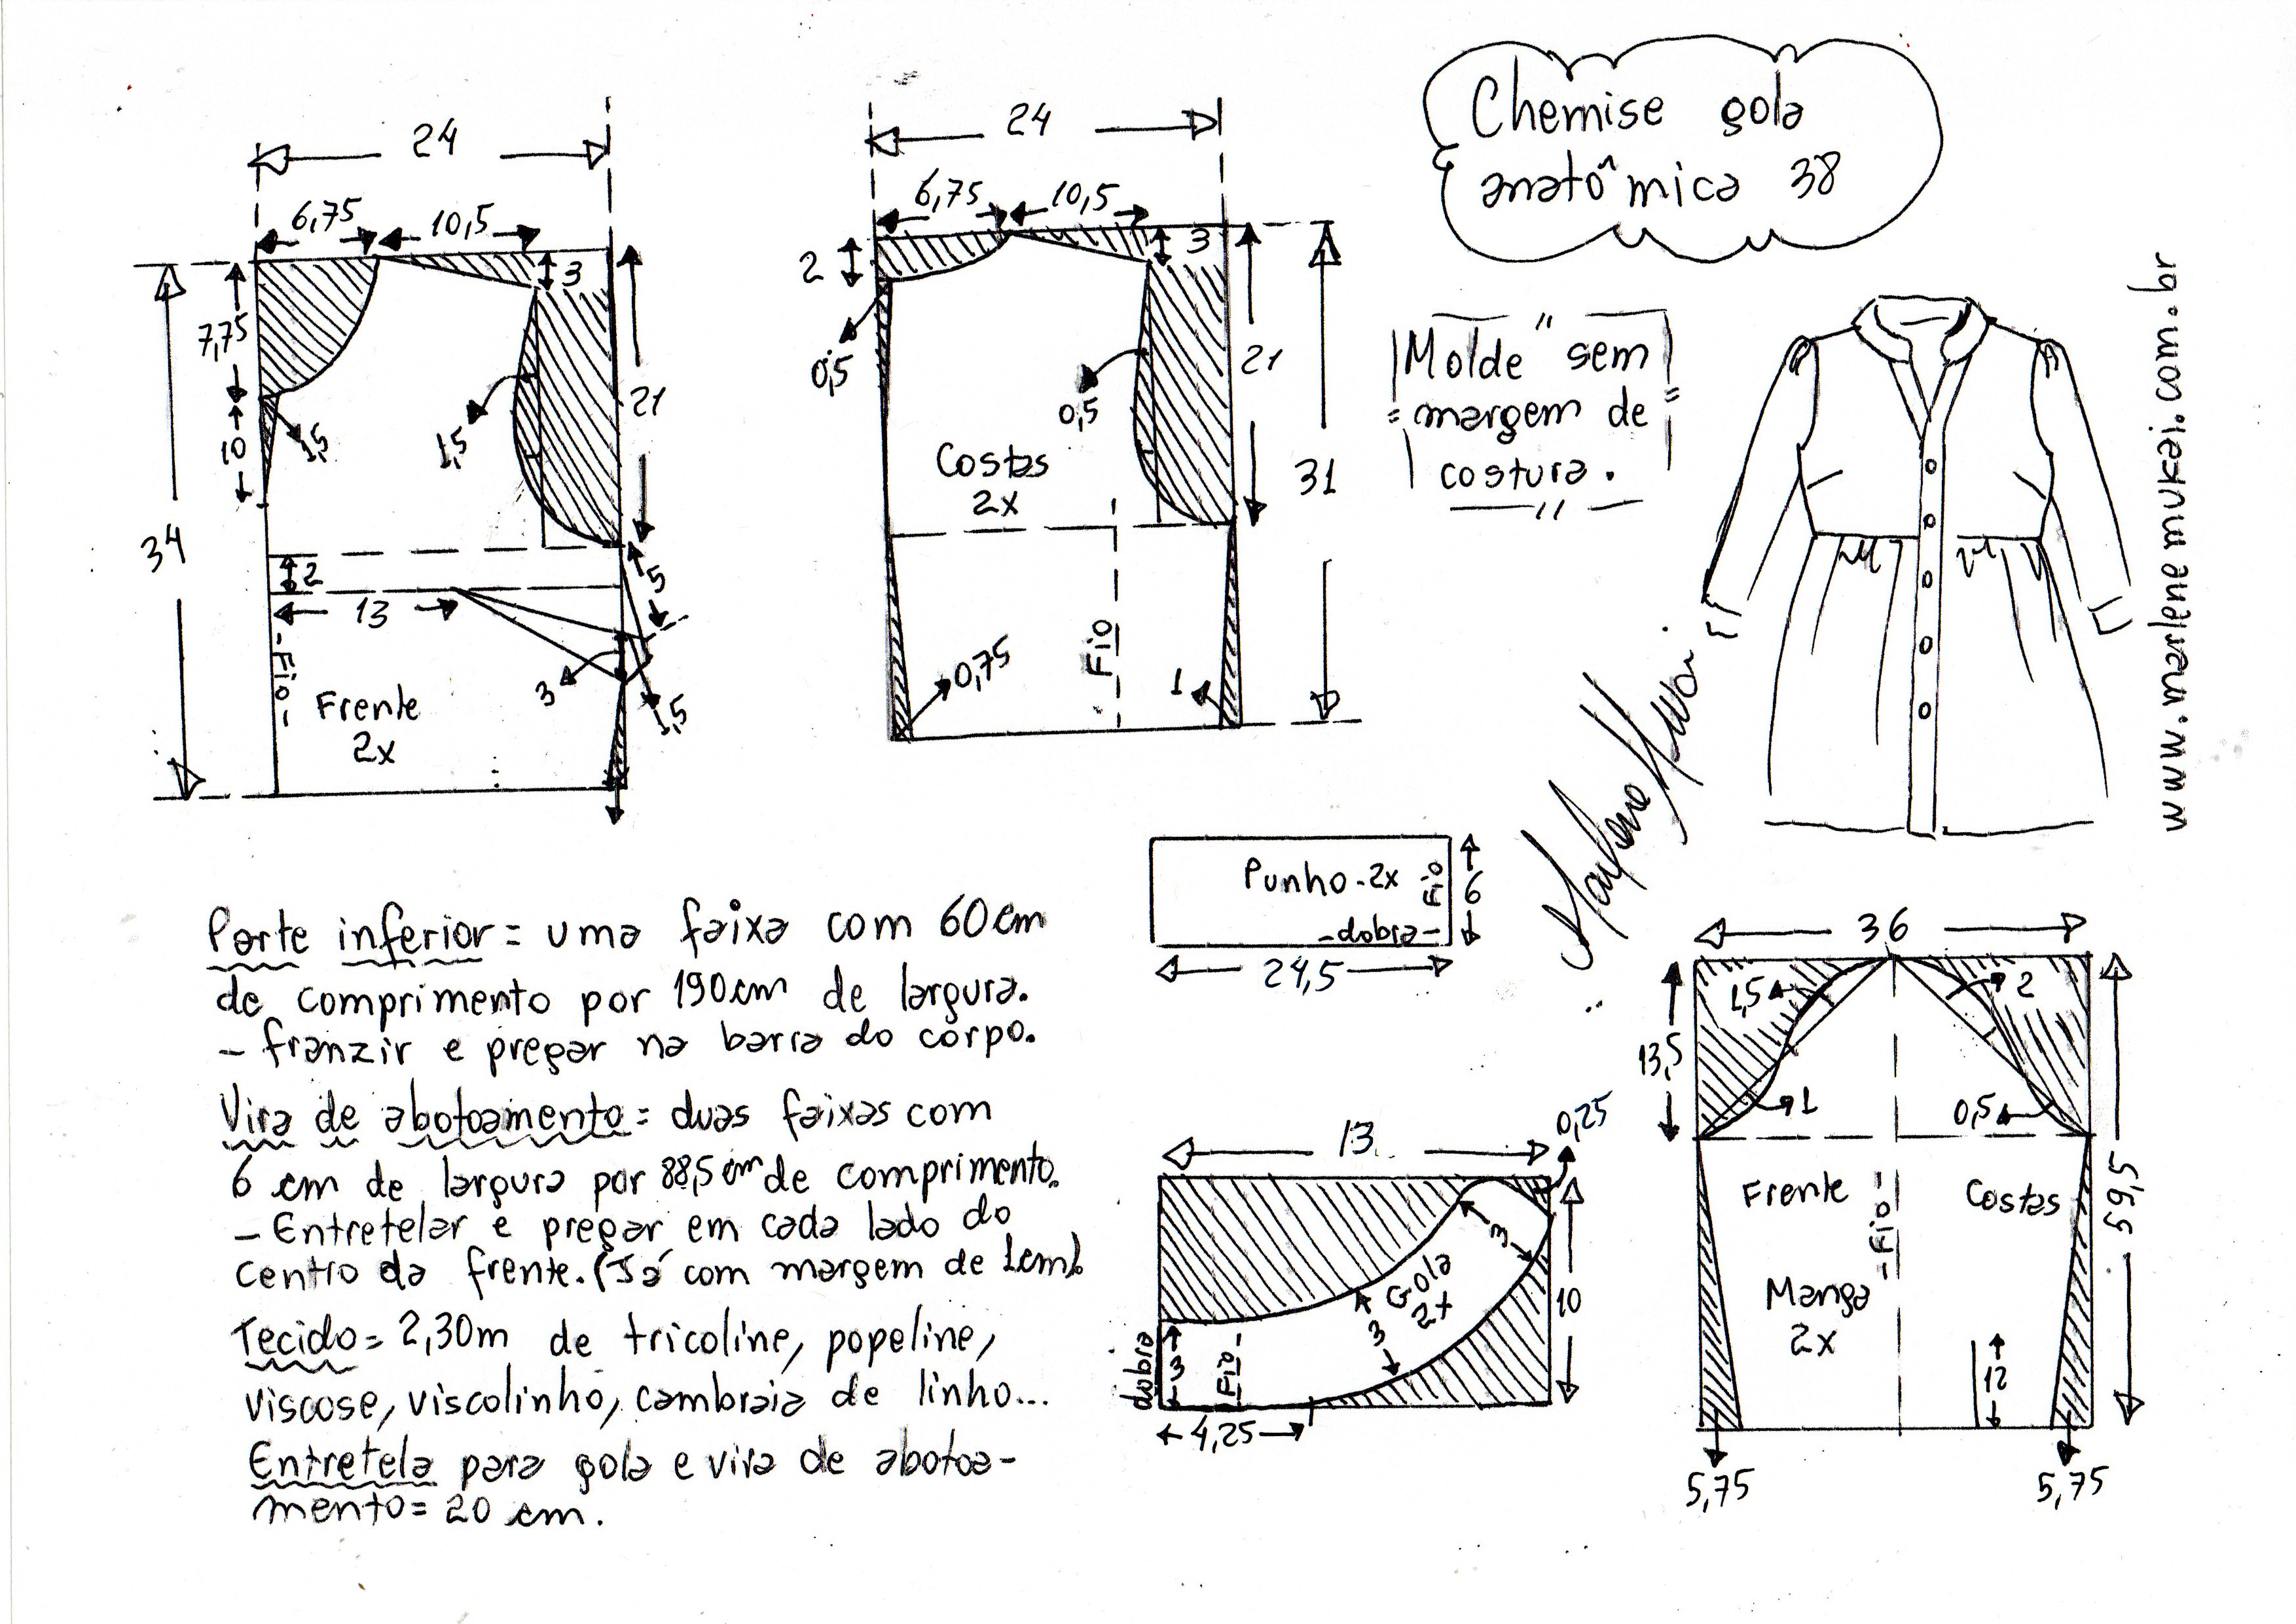 Chemise gola
anatômica 38
"
Molde sem
= margem de =
costura.
"
www.marlenemukai.com.br
24
6,75
10,5
3
7,75
1,5
10
1,5
21
34
2
13
5
3
1,5
-Fio-
Frente
2x
24
6,75
10,5
3
2
0,5
0,5
21
31
Costas
2x
Fio
0,75
1
Punho-2x
Fio
6
-dobra-
24,5
Parte inferior = uma faixa com 60cm
de comprimento por 190cm de largura.
- franzir e pregar na barra do corpo.
Vira de abotoamento = duas faixas com
6 cm de largura por 88,5cm de comprimento.
- Entretelar e pregar em cada lado do
centro da frente. (Já com margem de 1cm).
Tecido = 2,30m de tricoline, popeline,
viscose, viscolinho, cambraia de linho...
Entretela para gola e vira de abotoa-
mento = 20 cm.
13
0,25
3
Gola
2x
3
10
dobra
3
Fio-
4,25
36
1,5
2
13,5
1
0,5
59,5
Frente
-Fio-
Costas
Manga
2x
12
5,75
5,75